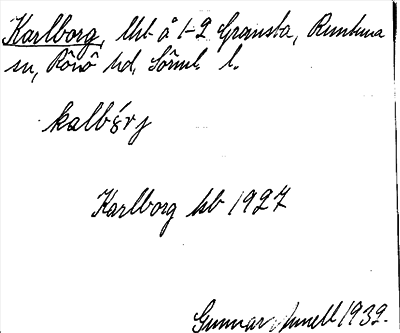 Karlborg, lht å 1-2 Gransta, Runtuna
sn, Rönö hd, Sörml. l.
kalbǫ́rj
Karlborg lht 1927
Gunnar Linnell 1939.